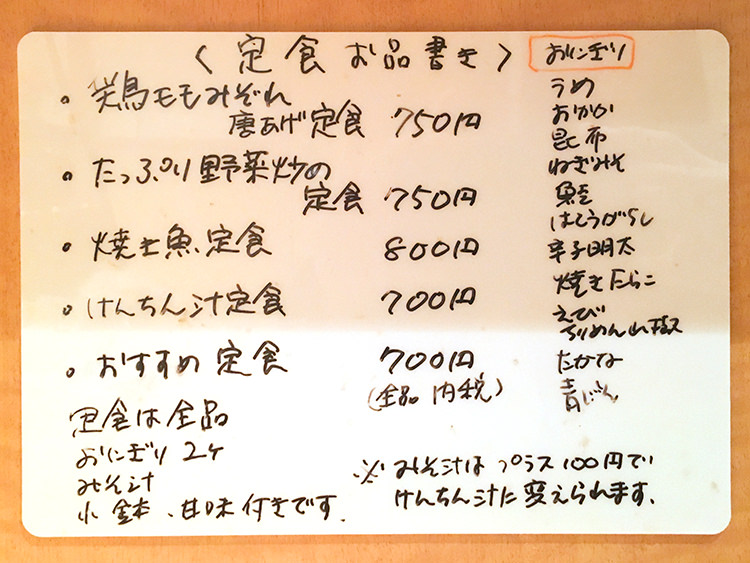 〈定食お品書き〉
・鶏モモみぞれ
唐あげ定食 750円
・たっぷり野菜炒の
定食 750円
・焼き魚定食 800円
・けんちん汁定食 700円
・おすすめ定食 700円
(全品 内税)
定食は全品
おにぎり 2ケ
みそ汁
小鉢、甘味付きです。
※ みそ汁は プラス100円で
けんちん汁に変えられます。
おにぎり
うめ
おかか
昆布
ねぎみそ
鮭
はとうがらし
辛子明太
焼きたらこ
えび
ちりめん山椒
たかな
青じそ